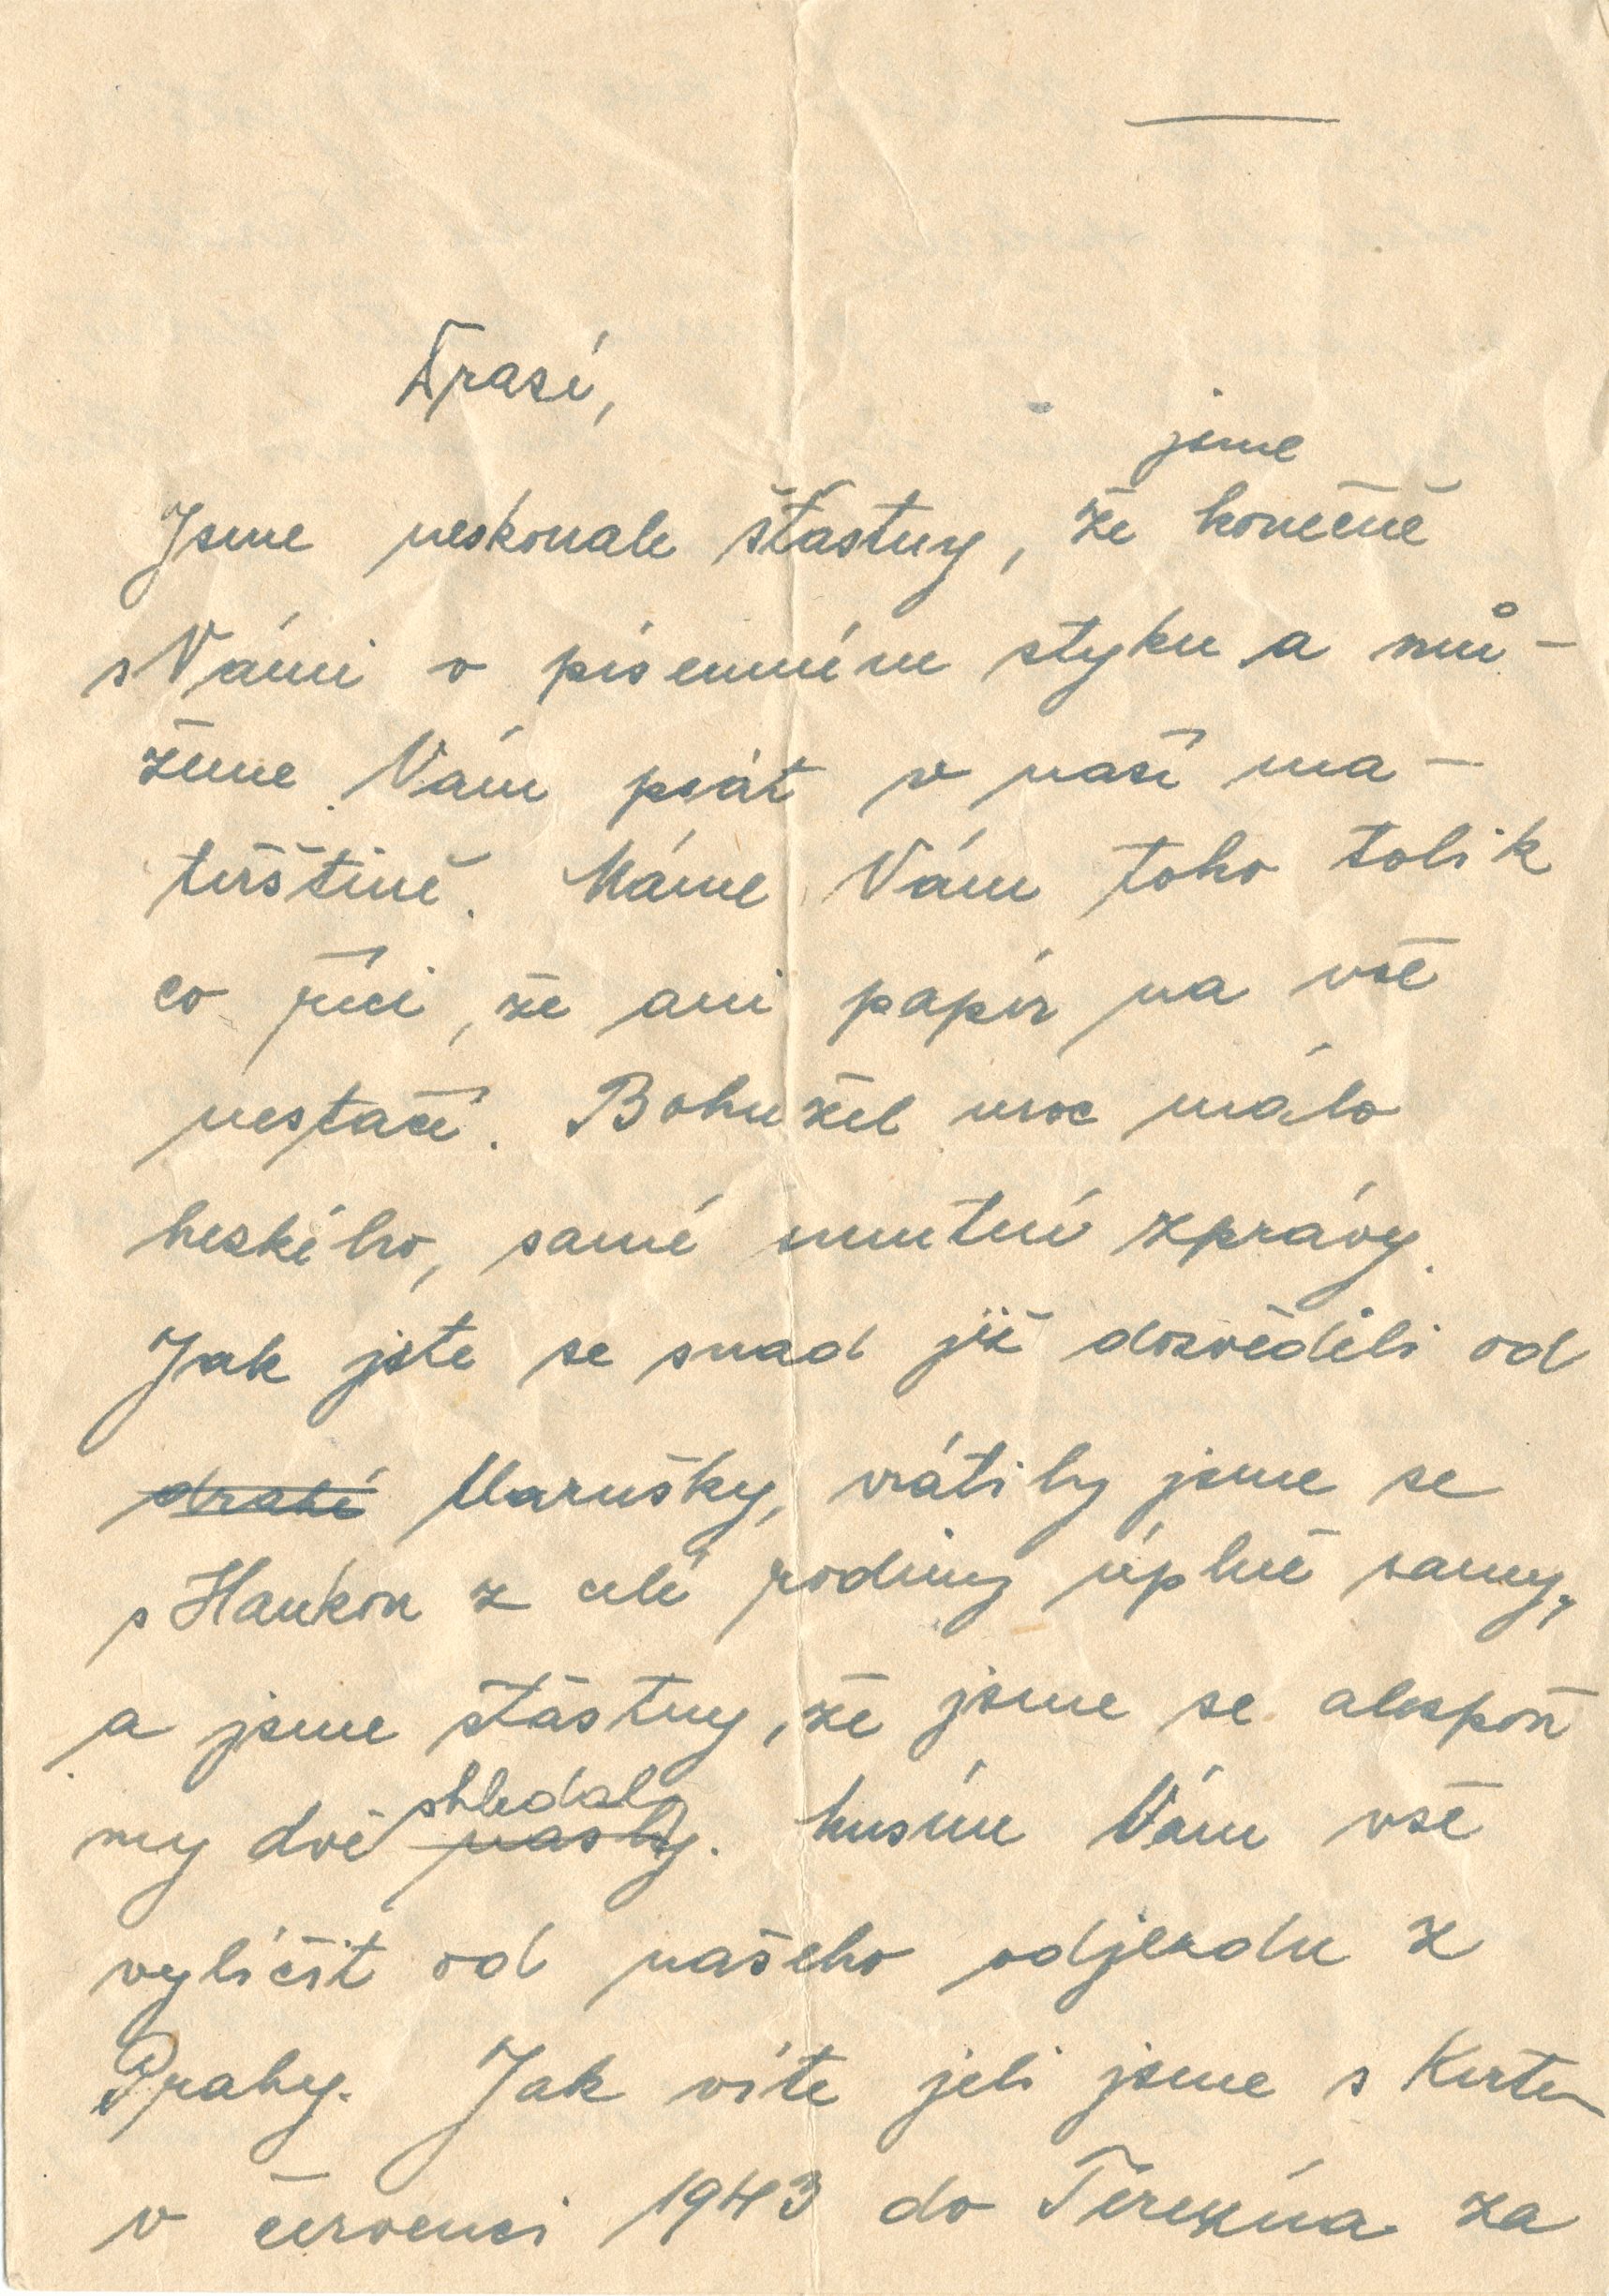 Drazí,
jsme
Jsme neskonale šťastny, že konečně
s Vámi v písemném styku a mů-
žeme Vám psát v naší ma-
teřštině. Máme Vám toho tolik
co říci, že ani papír na vše
nestačí. Bohužel moc málo
hezkého, samé smutné zprávy.
Jak jste se snad již dozvěděli od
drahé Marušky, vrátily jsme se
s Hankou z celé rodiny úplně samy,
a jsme šťastny, že jsme se alespoň
shledaly
my dvě našly. Musím Vám vše
vylíčit od našeho odjezdu z
Prahy. Jak víte jeli jsme s Kurtem
v červenci 1943 do Terezína za